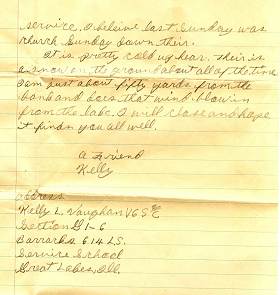 service. I beleive last Sunday was
church Sunday down their.
It is pretty cold up hear. their is
a snow on the ground about all of the time
I am just about fifty yards from the
bank and does that wind blow in
from the lake. I will close and hope
it finds you all well.
a Friend
Kelly
address
Kelly L. Vaughan V6 S
Section G1-6
Barracks 614 LS.
Service School
Great Lakes, Ill.